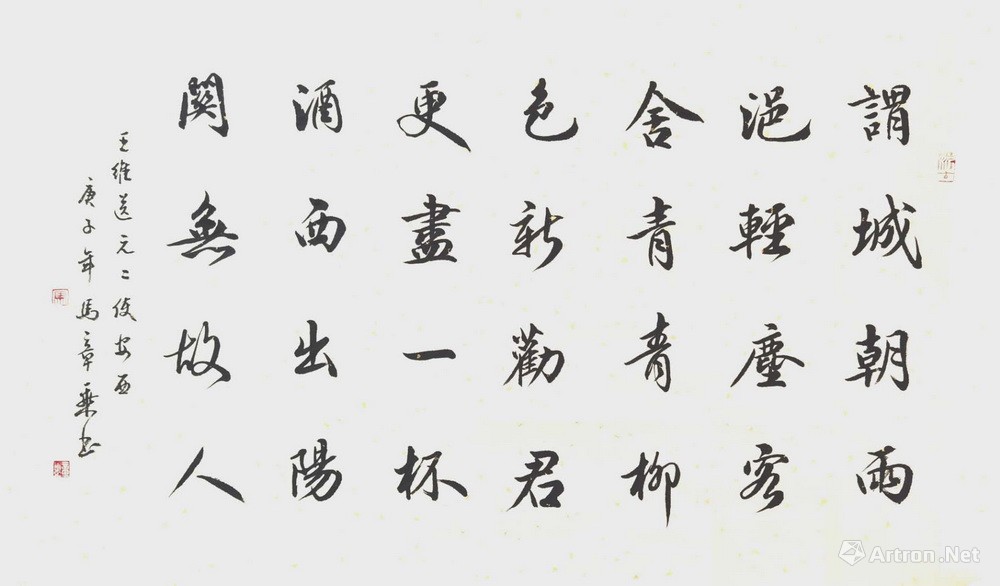 謂城朝雨
浥輕塵客
舍青青柳
色新勸君
更盡一杯
酒西出陽
關無故人
王維送元二使安西
庚子年馬章乘書
Artron.Net